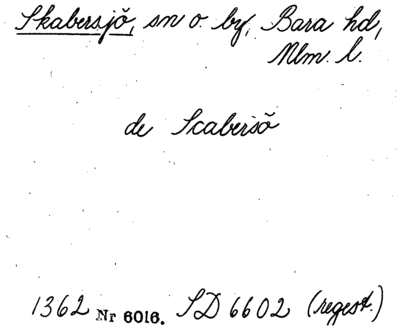 Skabersjö, sn o. by, Bara hd,
Mlm. l.
de Scabersö
1362 Nr 6016. SD 6602 (regest.)